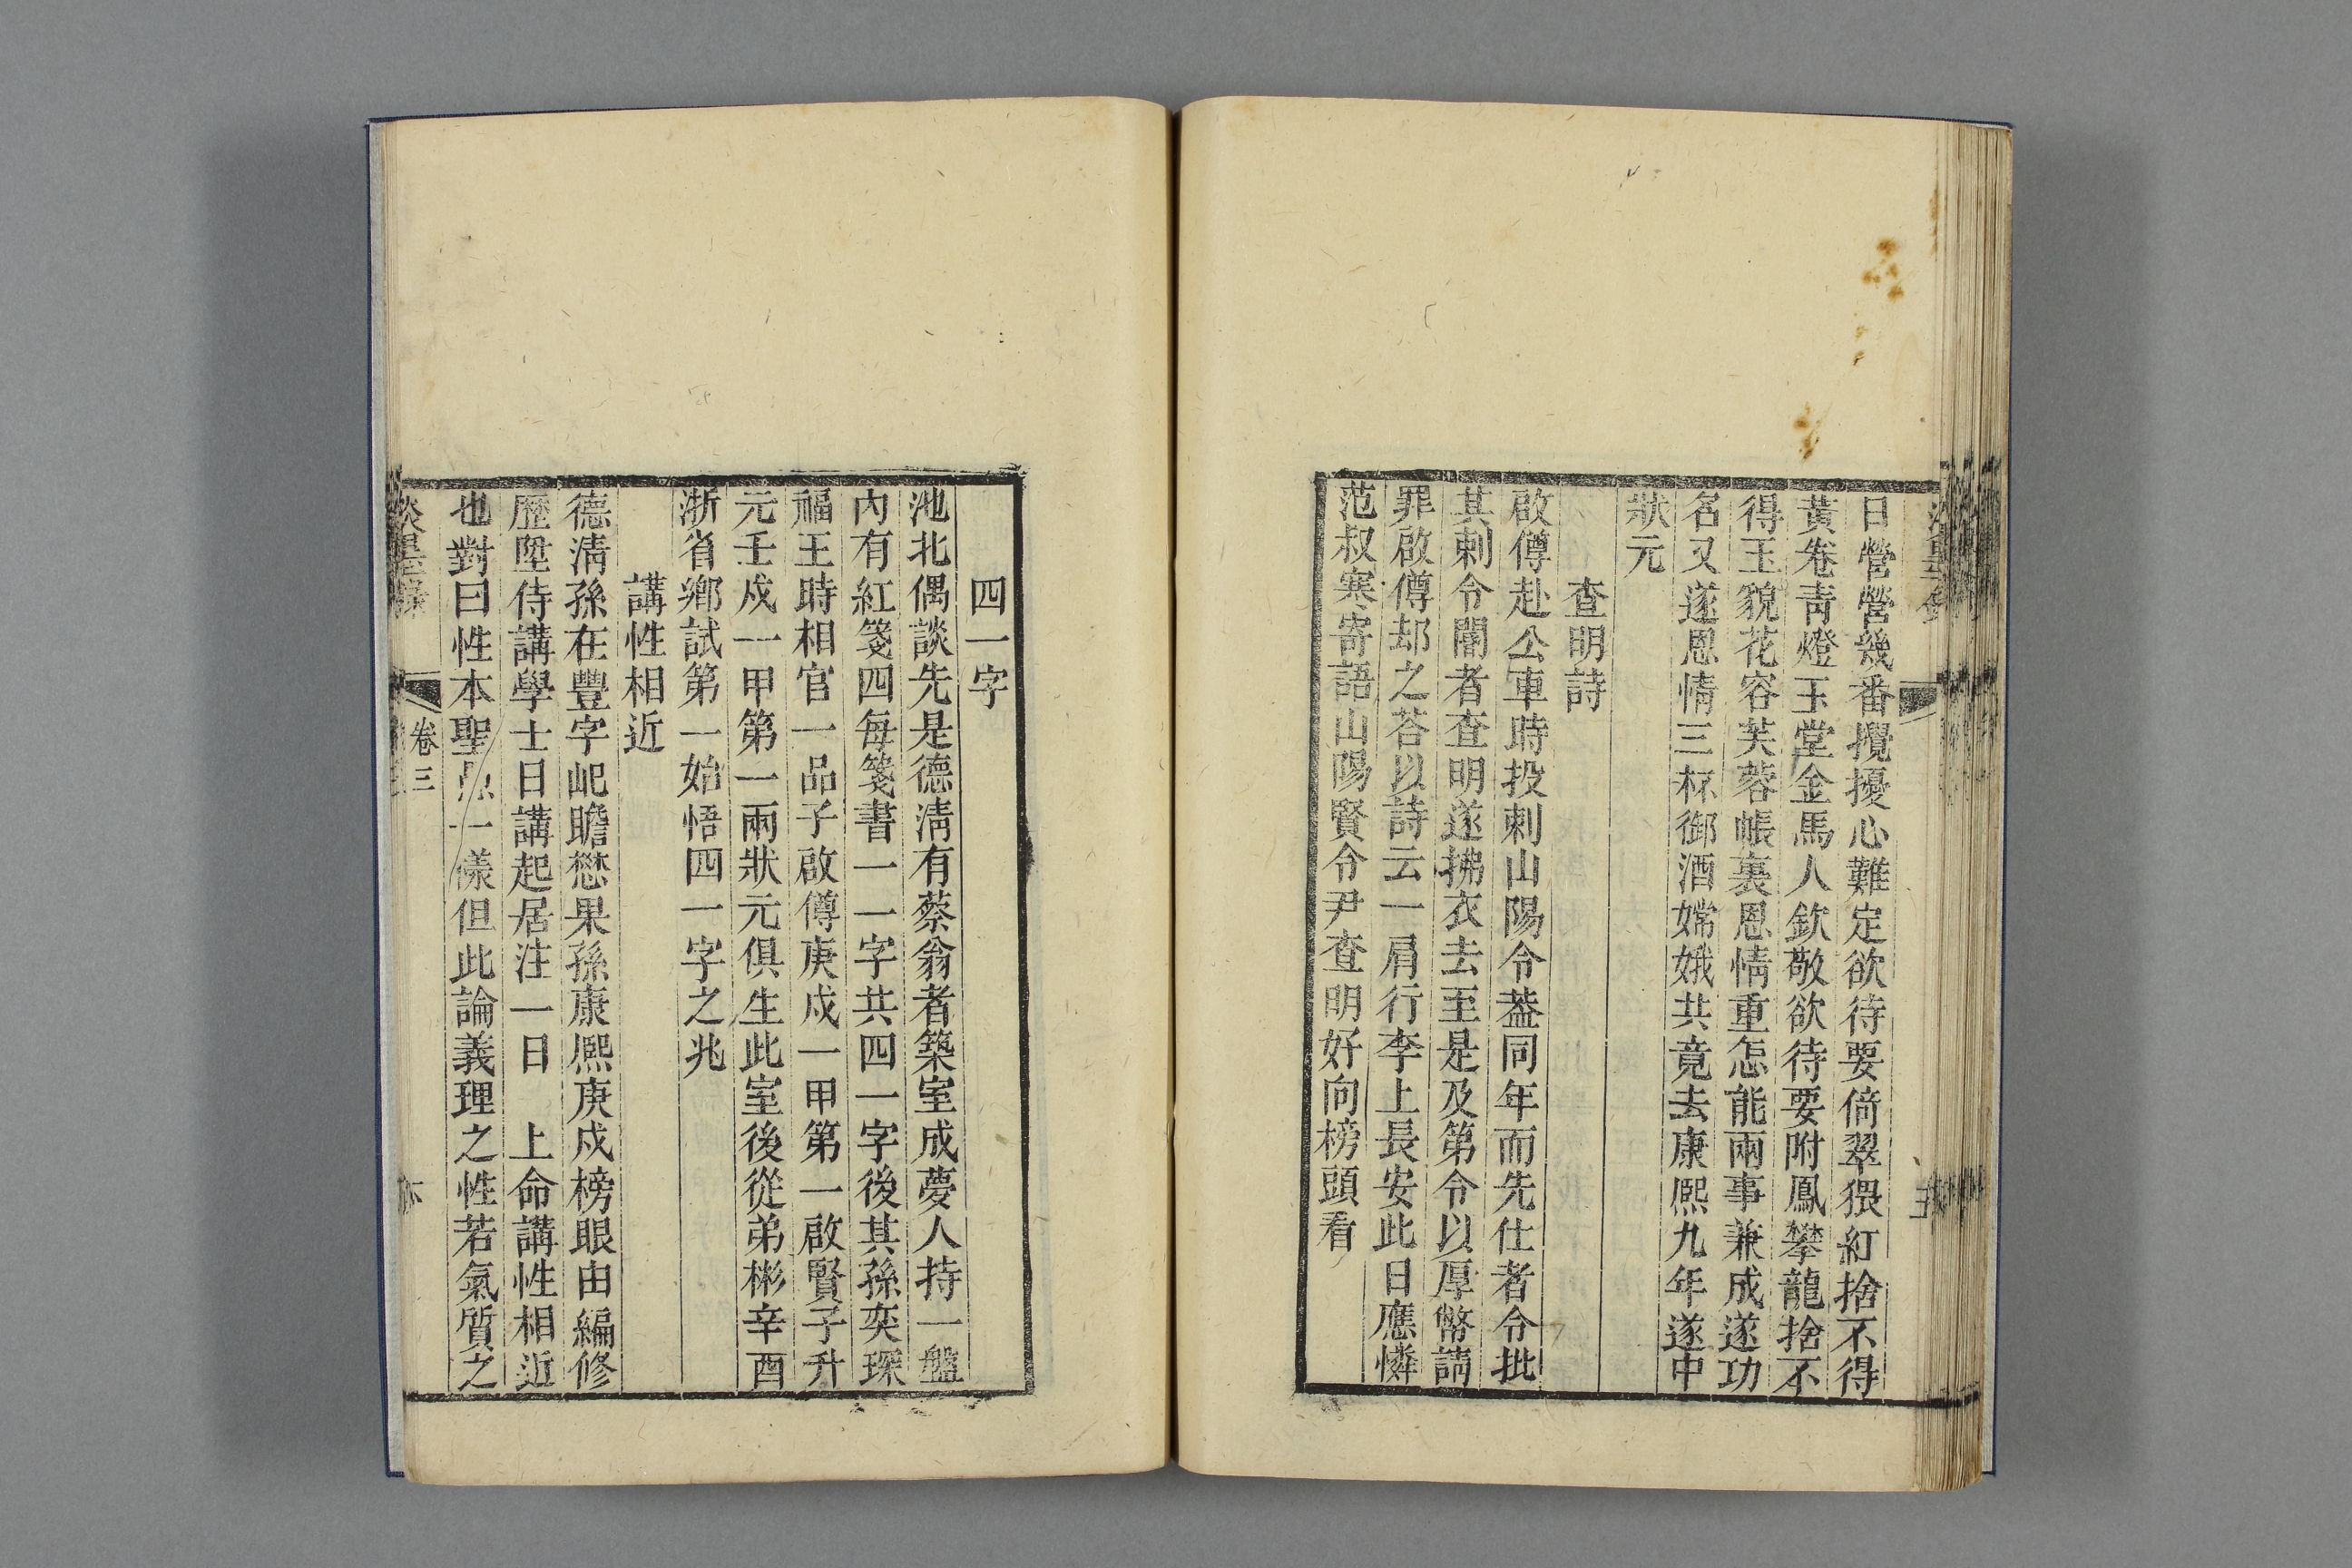 日營營幾番攪擾心難定欲待要倚翠猥紅捨不得
黃卷靑燈玉堂金馬人欽敬欲待要附鳳攀龍捨不
得玉貌花容芙蓉帳裏恩情重怎能兩事兼成遂功
名又遂恩情三杯御酒嫦娥共竟去康熙九年遂中
狀元
查明詩
啟僔赴公車時投刺山陽令葢同年而先仕者令批
其刺令閽者查明遂拂衣去至是及第令以厚幣請
罪啟僔却之荅以詩云一肩行李上長安此日應憐
范叔寒寄語山陽賢令尹查明好向榜頭看
四一字
池北偶談先是德淸有蔡翁者築室成夢人持一盤
內有紅箋四每箋書一一字共四一字後其孫奕琛
福王時相官一品子啟僔庚戍一甲第一啟賢子升
元壬戍一甲第一兩狀元俱生此室後從弟彬辛酉
浙省鄉試第一始悟四一字之兆
講性相近
德淸孫在豐字屺瞻懋果孫康熙庚戍榜眼由編修
歷陞侍講學士日講起居注一日 上命講性相近
也對曰性本聖愚一㨾但此論義理之性若氣質之
淡墨錄 卷三